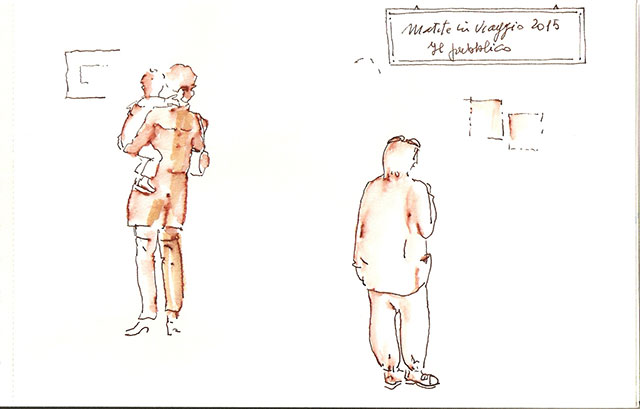 Matite in Viaggio 2015
Il pubblico